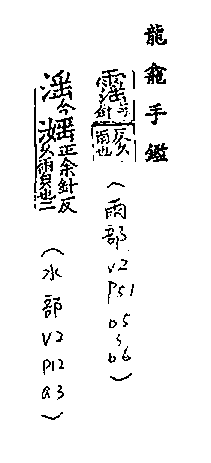 龍龕手鑑
反久雨也
(雨部 V2 P51 b5 3 b6)
滛今正余針反久雨皃也二
(水部 V2 P12 a3)